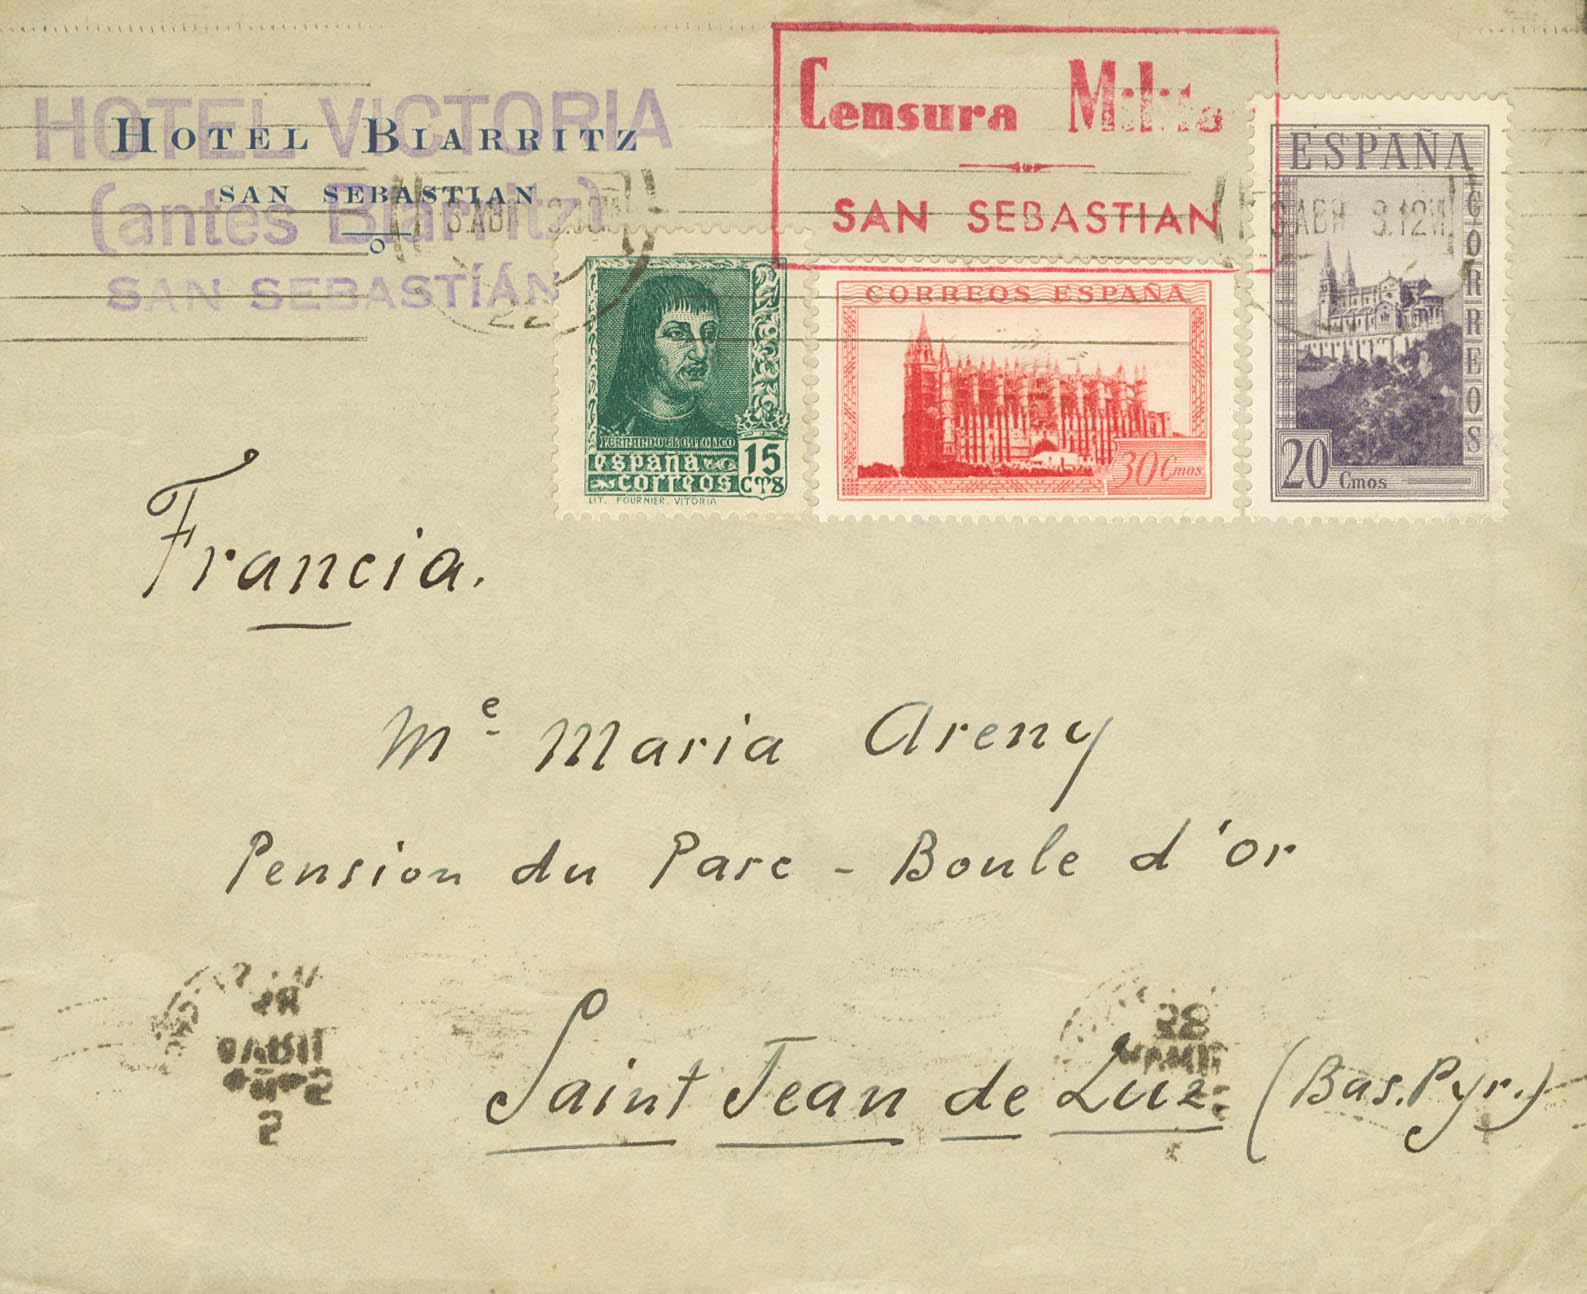 HOTEL VICTORIA
HOTEL BIARRITZ
SAN SEBASTIAN
(antes Biarritz)
SAN SEBASTIÁN
Censura
SAN SEBASTIAN
ABR 9.12M
FERNANDO EL CATOLICO
españa 15
correos CTS
LIT. FOURNIER. VITORIA
CORREOS ESPAÑA
30 Cmos
ESPAÑA
CORREOS
20 Cmos
Francia.
Me Maria Areny
Pension du Parc - Boule d'or
Saint Jean de Luz (Bas. Pyr.)